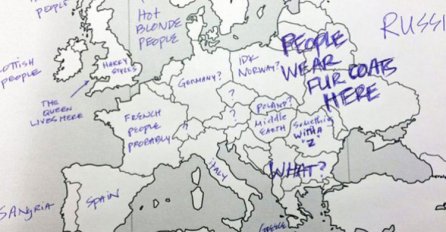 PEOPLE
HOT
BLONDE
PEOPLE
RUSSI
OTTISH
PEOPLE
HARRY
STYLES
THE
QUEEN
LIVES HERE
IDK
NORWAY?
PEOPLE
WEAR
FUR COATS
HERE
GERMANY?
?
POLAND?
FRENCH
PEOPLE
PROBABLY
?
?
MIDDLE
EARTH
SOMETHING
WITH A
"Z"
WHAT?
ITALY
SANGRIA
SPAIN
GREECE